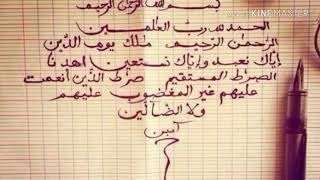 Made with KINEMASTER
بسم الله الرحمن الرحيم
الحمد لله ربّ العالمين
الرحمان الرحيم ملك يوم الدّين
إيّاك نعبد وإيّاك نستعين اهدنا
الصرط المستقيم صرط الذين أنعمت
عليهم غير المغضوب عليهم
ولا الضالّين
آمين